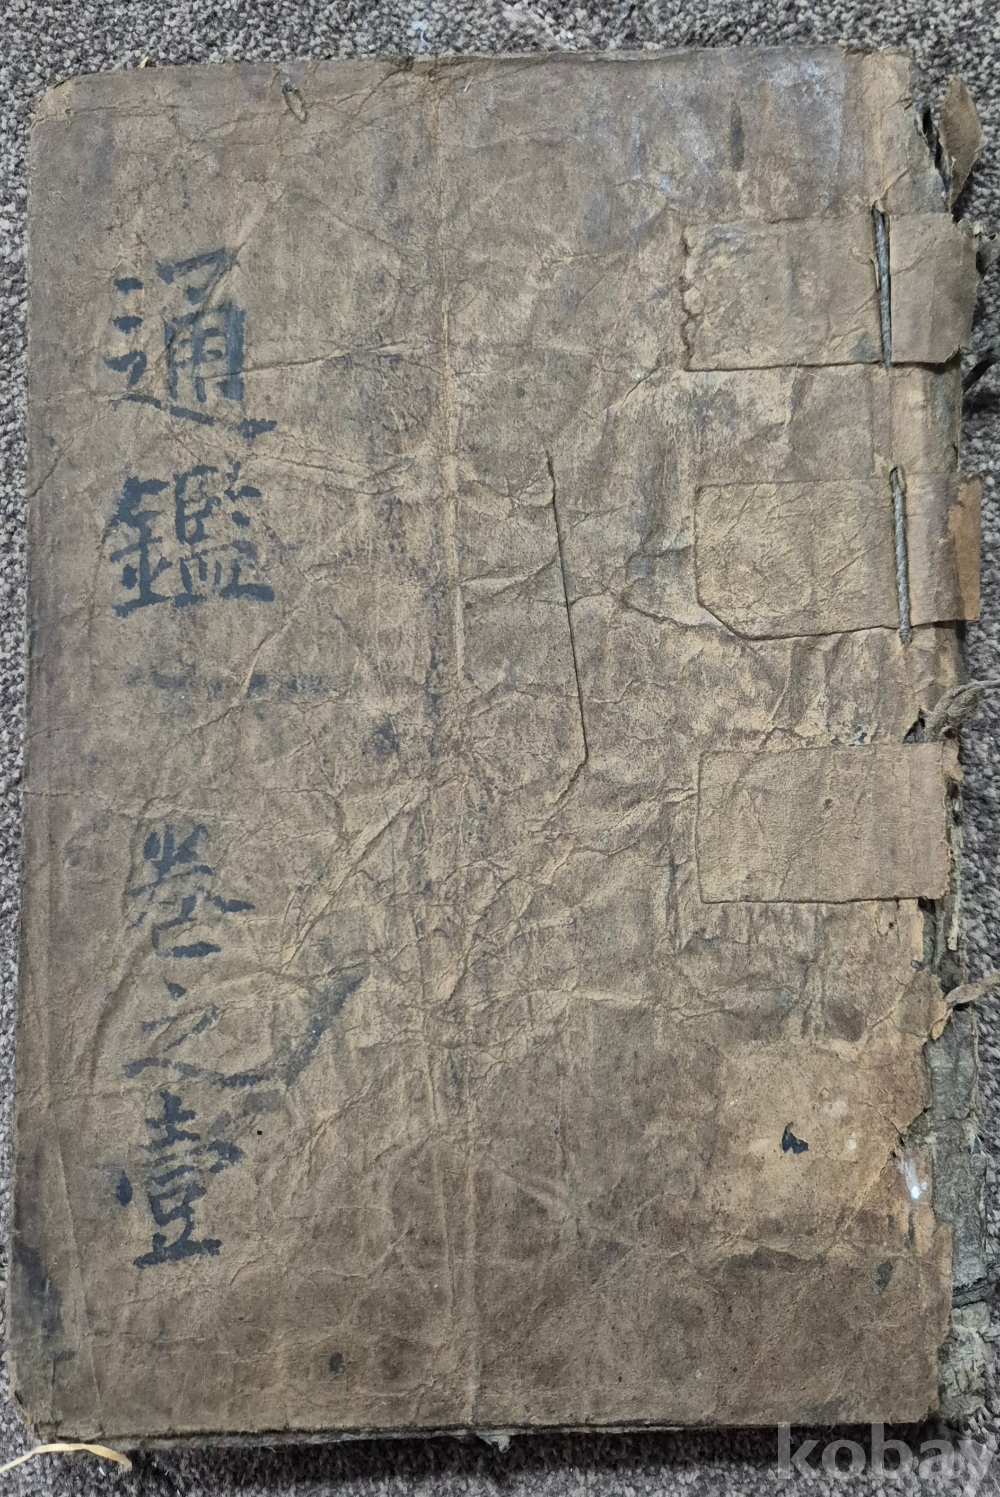 通鑑 卷之壹
kobay